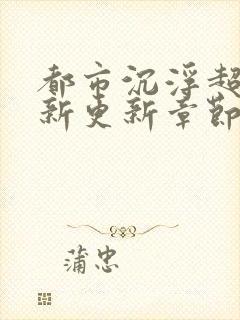 都市沉浮超
新更新章節
蒲忠